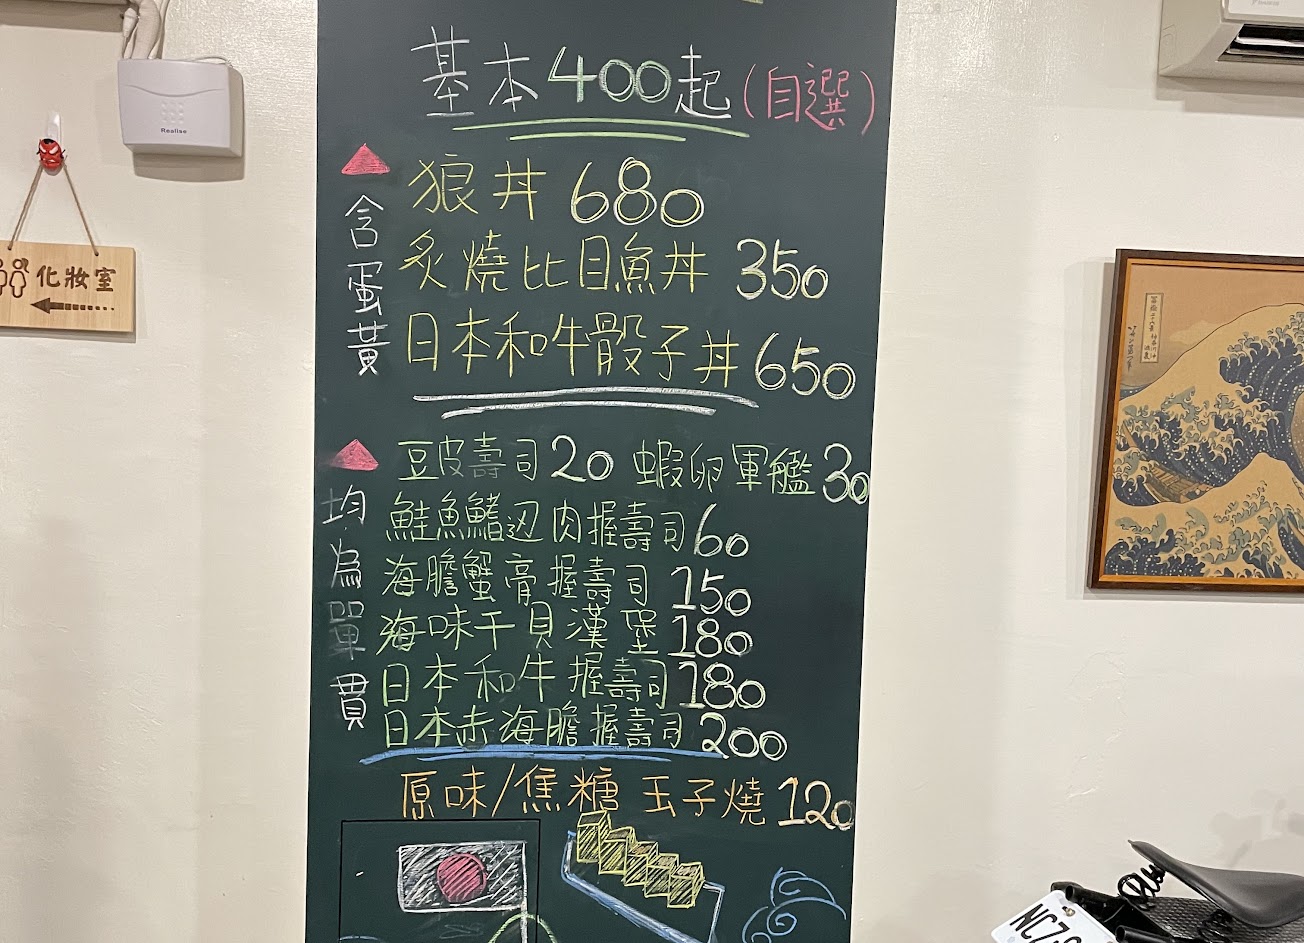 基本400起(自選)
含蛋黃
狼丼 680
炙燒比目魚丼 350
日本和牛骰子丼 650
均為單貫
豆皮壽司 20 蝦卵軍艦 30
鮭魚鰭辺肉握壽司 60
海膽蟹膏握壽司 150
海味干貝漢堡 180
日本和牛握壽司 180
日本赤海膽握壽司 200
原味/焦糖 玉子燒 120
Realise
化妝室